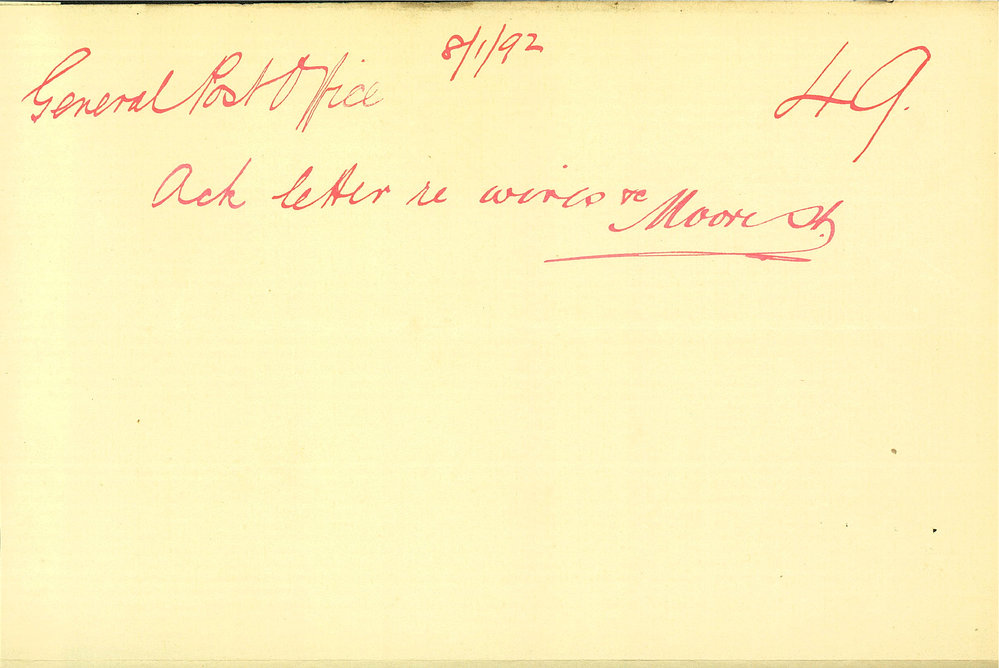 8/1/92
General Post Office
49.
Ack letter re wires &c
Moore St.